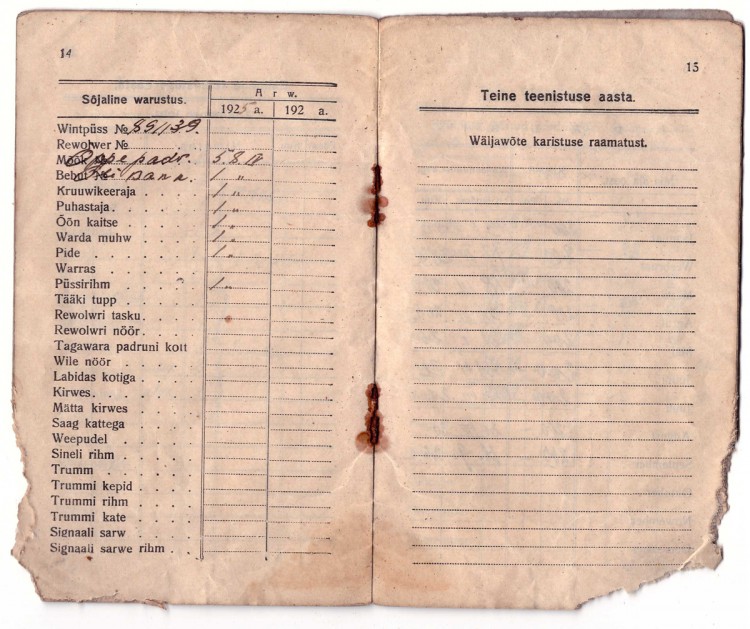 14
Sõjaline warustus.
A r w.
1925 a. 192 a.
Wintpüss №
Rewolwer №
Mõõk padr. 5.8.
Bebut 1 "
Kruuwikeeraja 1 "
Puhastaja 1 "
Õõn kaitse 1 "
Warda muhw 1 "
Pide 1 "
Warras
Püssirihm 1 "
Tääki tupp
Rewolwri tasku
Rewolwri nöör
Tagawara padruni kott
Wile nöör
Labidas kotiga
Kirwes
Mätta kirwes
Saag kattega
Weepudel
Sineli rihm
Trumm
Trummi kepid
Trummi rihm
Trummi kate
Signaali sarw
Signaali sarwe rihm
15
Teine teenistuse aasta.
Wäljawõte karistuse raamatust.